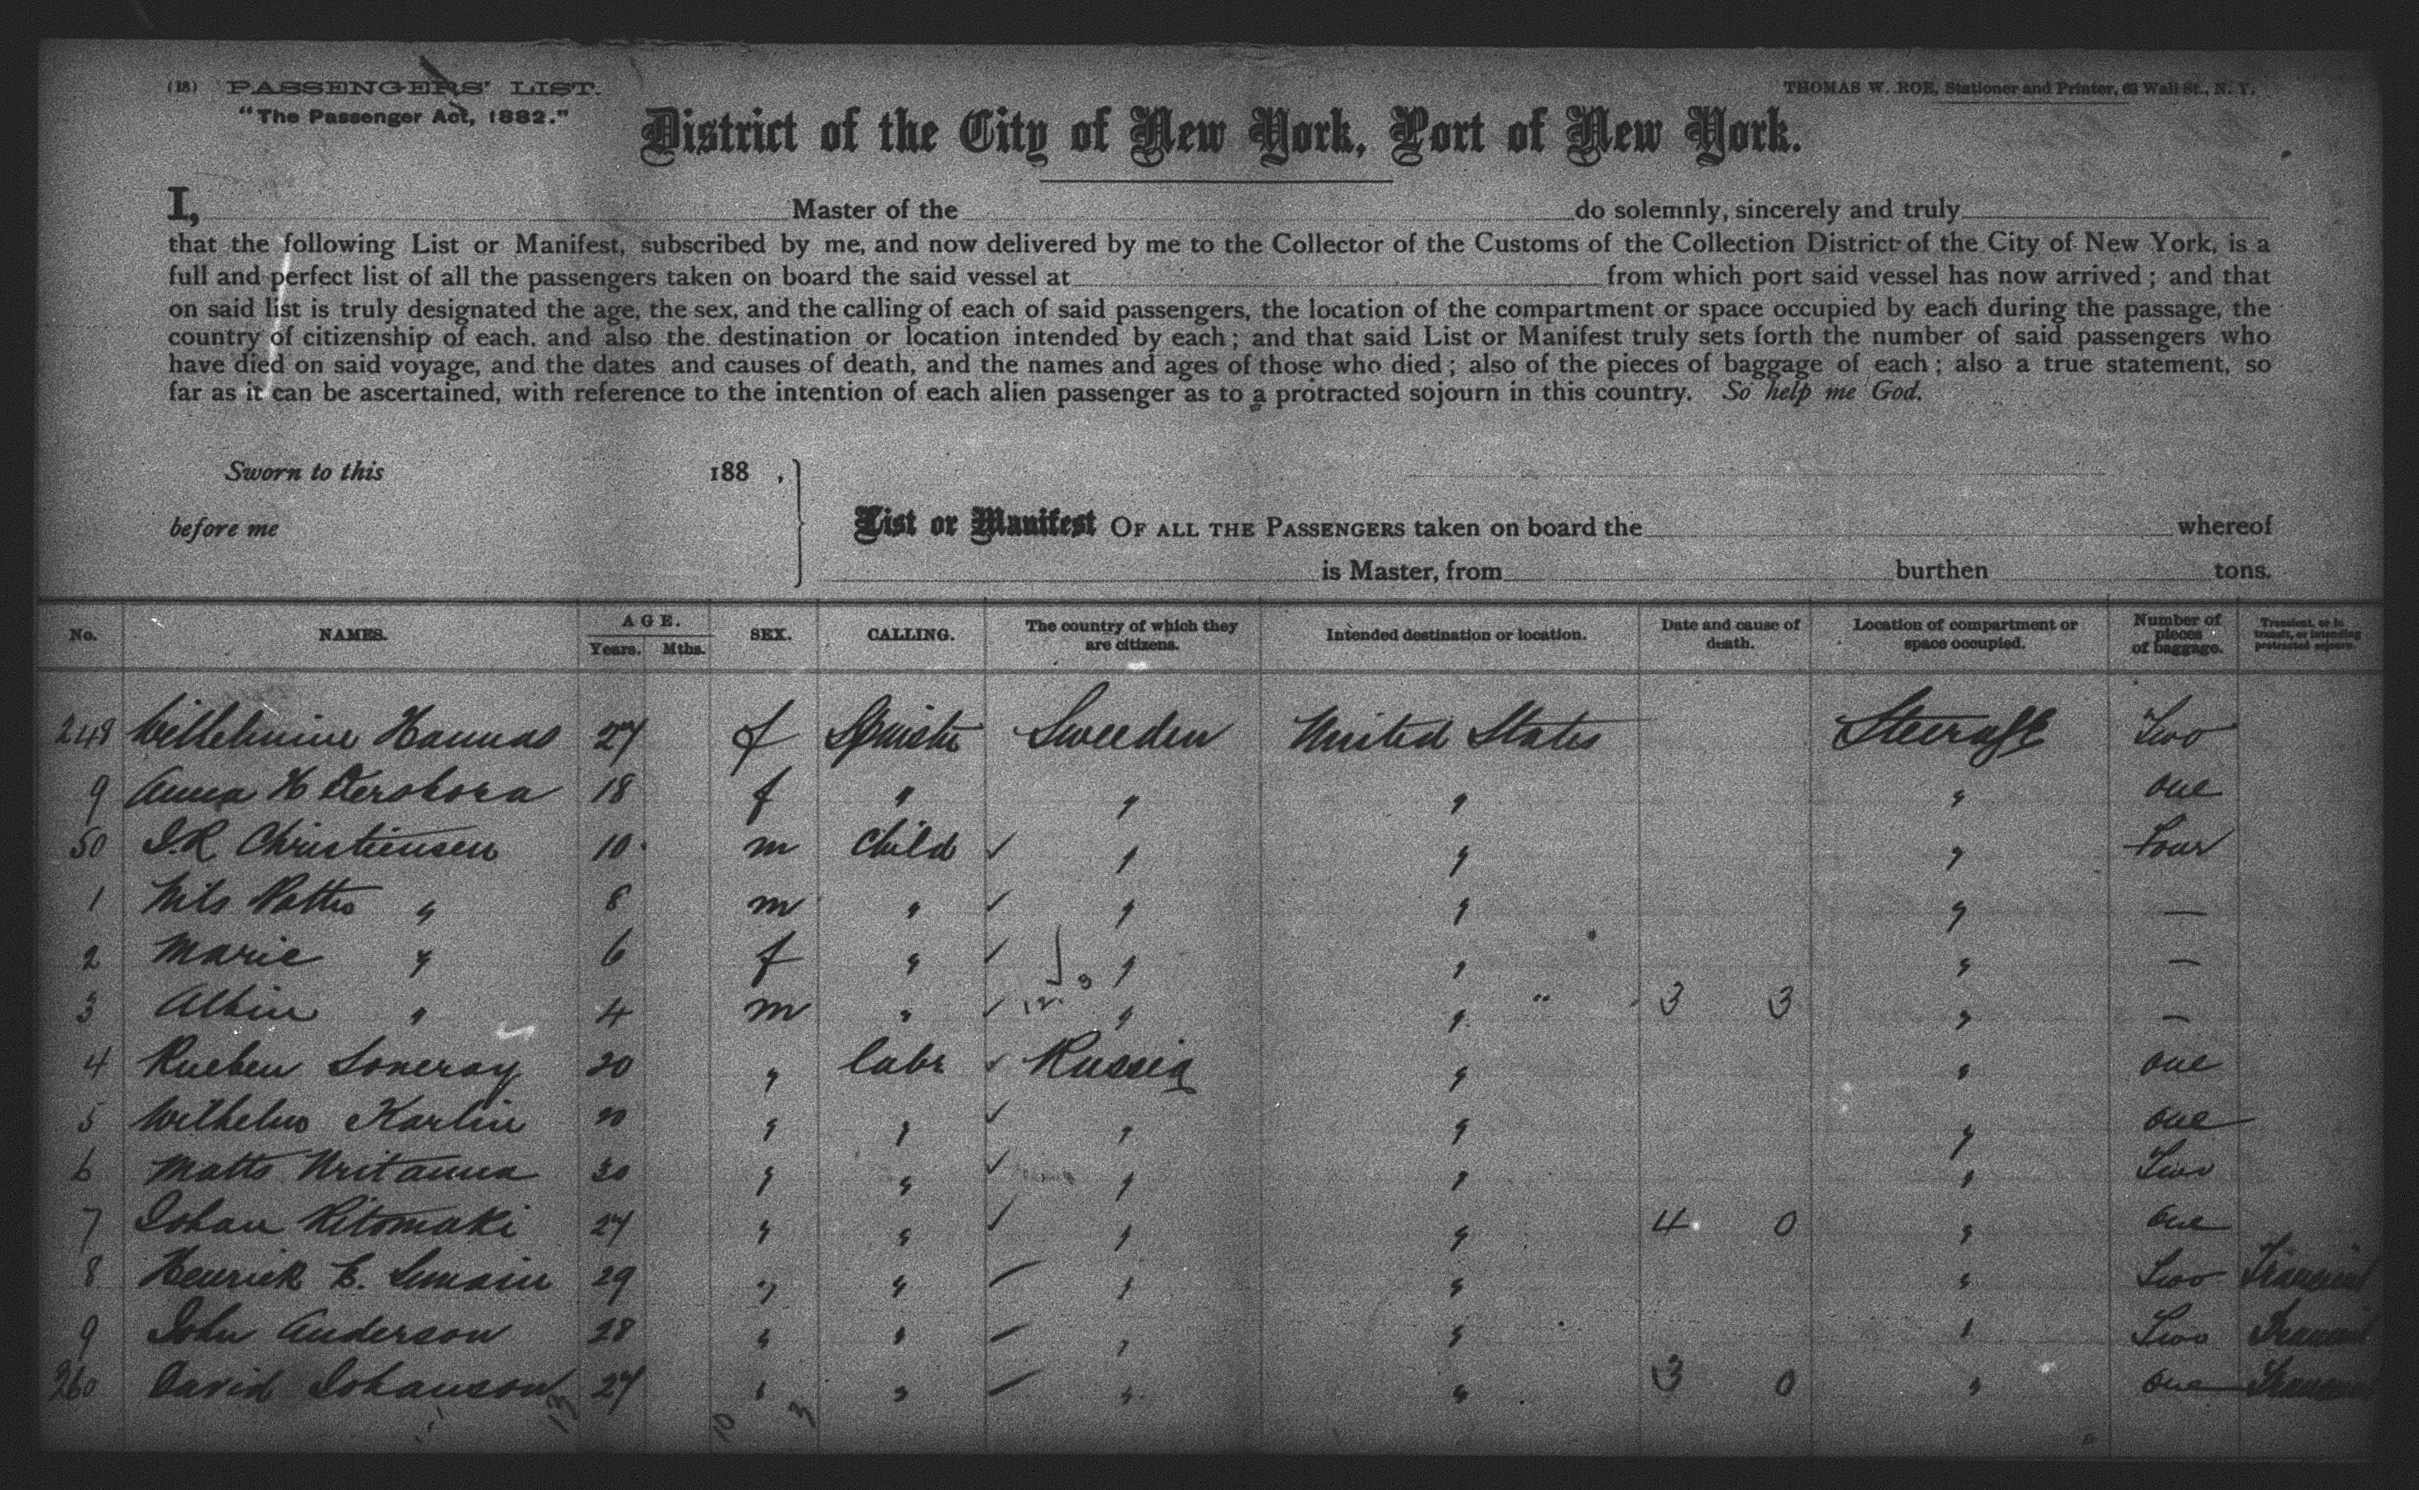 (18) PASSENGERS' LIST.
"The Passenger Act, 1882."
THOMAS W. ROE, Stationer and Printer, 63 Wall St., N. Y.
District of the City of New York, Port of New York.
I, Master of the do solemnly, sincerely and truly
that the following List or Manifest, subscribed by me, and now delivered by me to the Collector of the Customs of the Collection District of the City of New York, is a
full and perfect list of all the passengers taken on board the said vessel at from which port said vessel has now arrived; and that
on said list is truly designated the age, the sex, and the calling of each of said passengers, the location of the compartment or space occupied by each during the passage, the
country of citizenship of each, and also the destination or location intended by each; and that said List or Manifest truly sets forth the number of said passengers who
have died on said voyage, and the dates and causes of death, and the names and ages of those who died; also of the pieces of baggage of each; also a true statement, so
far as it can be ascertained, with reference to the intention of each alien passenger as to a protracted sojourn in this country. So help me God.
Sworn to this 188 ,
before me
List or Manifest OF ALL THE PASSENGERS taken on board the whereof
is Master, from burthen tons.
No. NAMES. AGE. Years. Mths. SEX. CALLING. The country of which they are citizens. Intended destination or location. Date and cause of death. Location of compartment or space occupied. Number of pieces of baggage. Transient, or in transit, or intending protracted sojourn.
248 Wilhelmine Hannas 27 f Spinster Sweeden United States Steerage Two
9 Anna H 18 f " " " " one
50 J.R. Christiensen 10 m Child ✓ " " " Four
1 Nils " 8 m " ✓ " " " —
2 Marie " 6 f " ✓ " " " —
3 Albin " 4 m " ✓ 12 " " 3 3 " —
4 Rueben 20 " labr ✓ Russia " " one
5 Wilhelm Karlin 20 " " ✓ " " " one
6 Matts 30 " " ✓ " " " Two
7 Johan Ritomaki 27 " " ✓ " " 4 0 " one
8 Henrick E. 29 " " " " " Two Transient
9 John Anderson 28 " " " " " Two Transient
260 David Johanson 27 " " " " 3 0 " one Transient
13 10 3